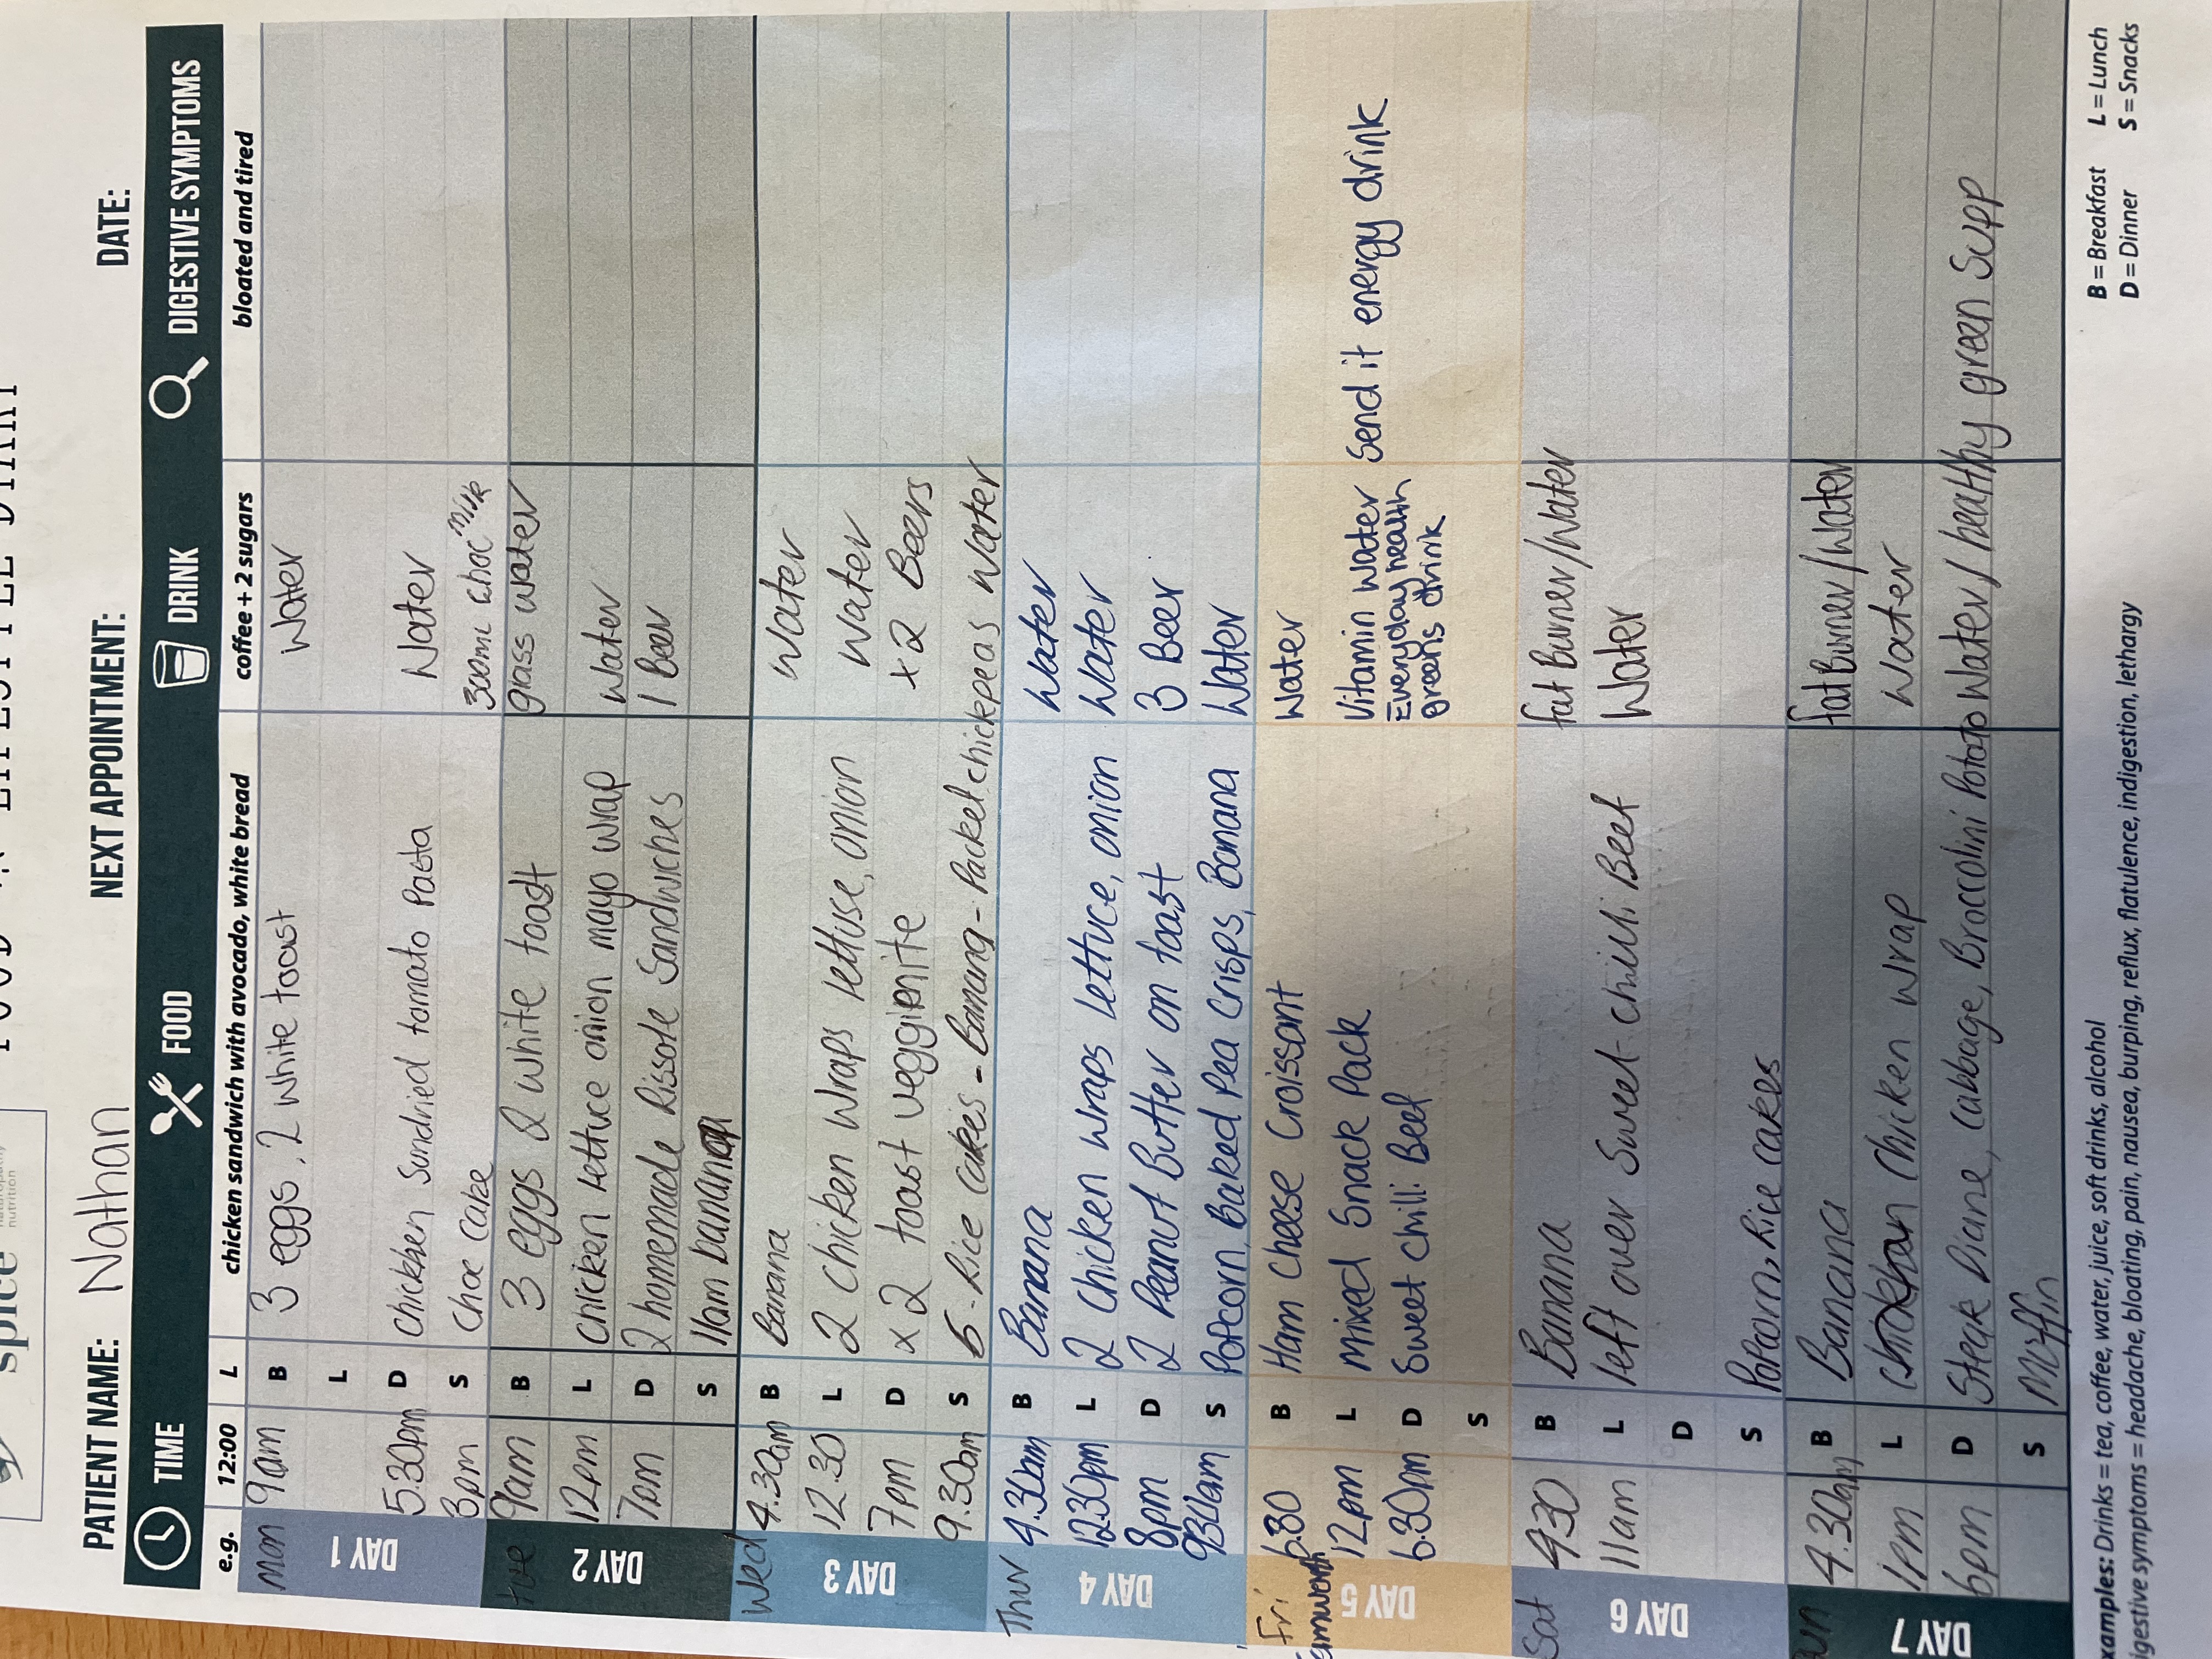 FOOD & LIFESTYLE DIARY
spice
nutrition
PATIENT NAME: Nathan NEXT APPOINTMENT: DATE:
TIME FOOD DRINK DIGESTIVE SYMPTOMS
e.g. 12:00 L chicken sandwich with avocado, white bread coffee + 2 sugars bloated and tired
Mon DAY 1
9am B 3 eggs, 2 white toast Water
L
5.30pm D Chicken Sundried tomato Pasta Water
8pm S Choc Cake 300ml Choc Milk
tue DAY 2
9am B 3 eggs 2 white toast glass water
12pm L Chicken lettuce onion mayo wrap Water
7pm D 2 homemade Rissole Sandwiches 1 Beer
S 11am banana
Wed DAY 3
4.30am B Banana Water
12.30 L 2 Chicken wraps lettuse, onion Water
7pm D x 2 toast veggienite x 2 Beers
9.30am S 6 - Rice Cakes - Banana - Packet chickpeas Water
Thur DAY 4
4.30am B Banana Water
12.30pm L 2 Chicken wraps lettuce, onion Water
8pm D 2 Peanut Butter on toast 3 Beer
930am S Potcorn, Baked Pea Crisps, Banana Water
Fri DAY 5
6.30 B Ham Cheese Croissant Water
12pm L Mixed Snack Pack Vitamin Water Send it energy drink
6.30pm D Sweet Chilli Beef Everyday health
greens drink
S
Sat DAY 6
4.30 B Banana fat Burner/Water
11am L left over Sweet chilli Beef Water
D
S Potcorn, Rice cakes
Sun DAY 7
4.30am B Banana fat Burner/Water
1pm L Chicken wrap Water
6pm D Steak Diane, Cabbage, Broccolini Potato Water/healthy green Supp
S Muffin
examples: Drinks = tea, coffee, water, juice, soft drinks, alcohol B = Breakfast L = Lunch
digestive symptoms = headache, bloating, pain, nausea, burping, reflux, flatulence, indigestion, lethargy D = Dinner S = Snacks